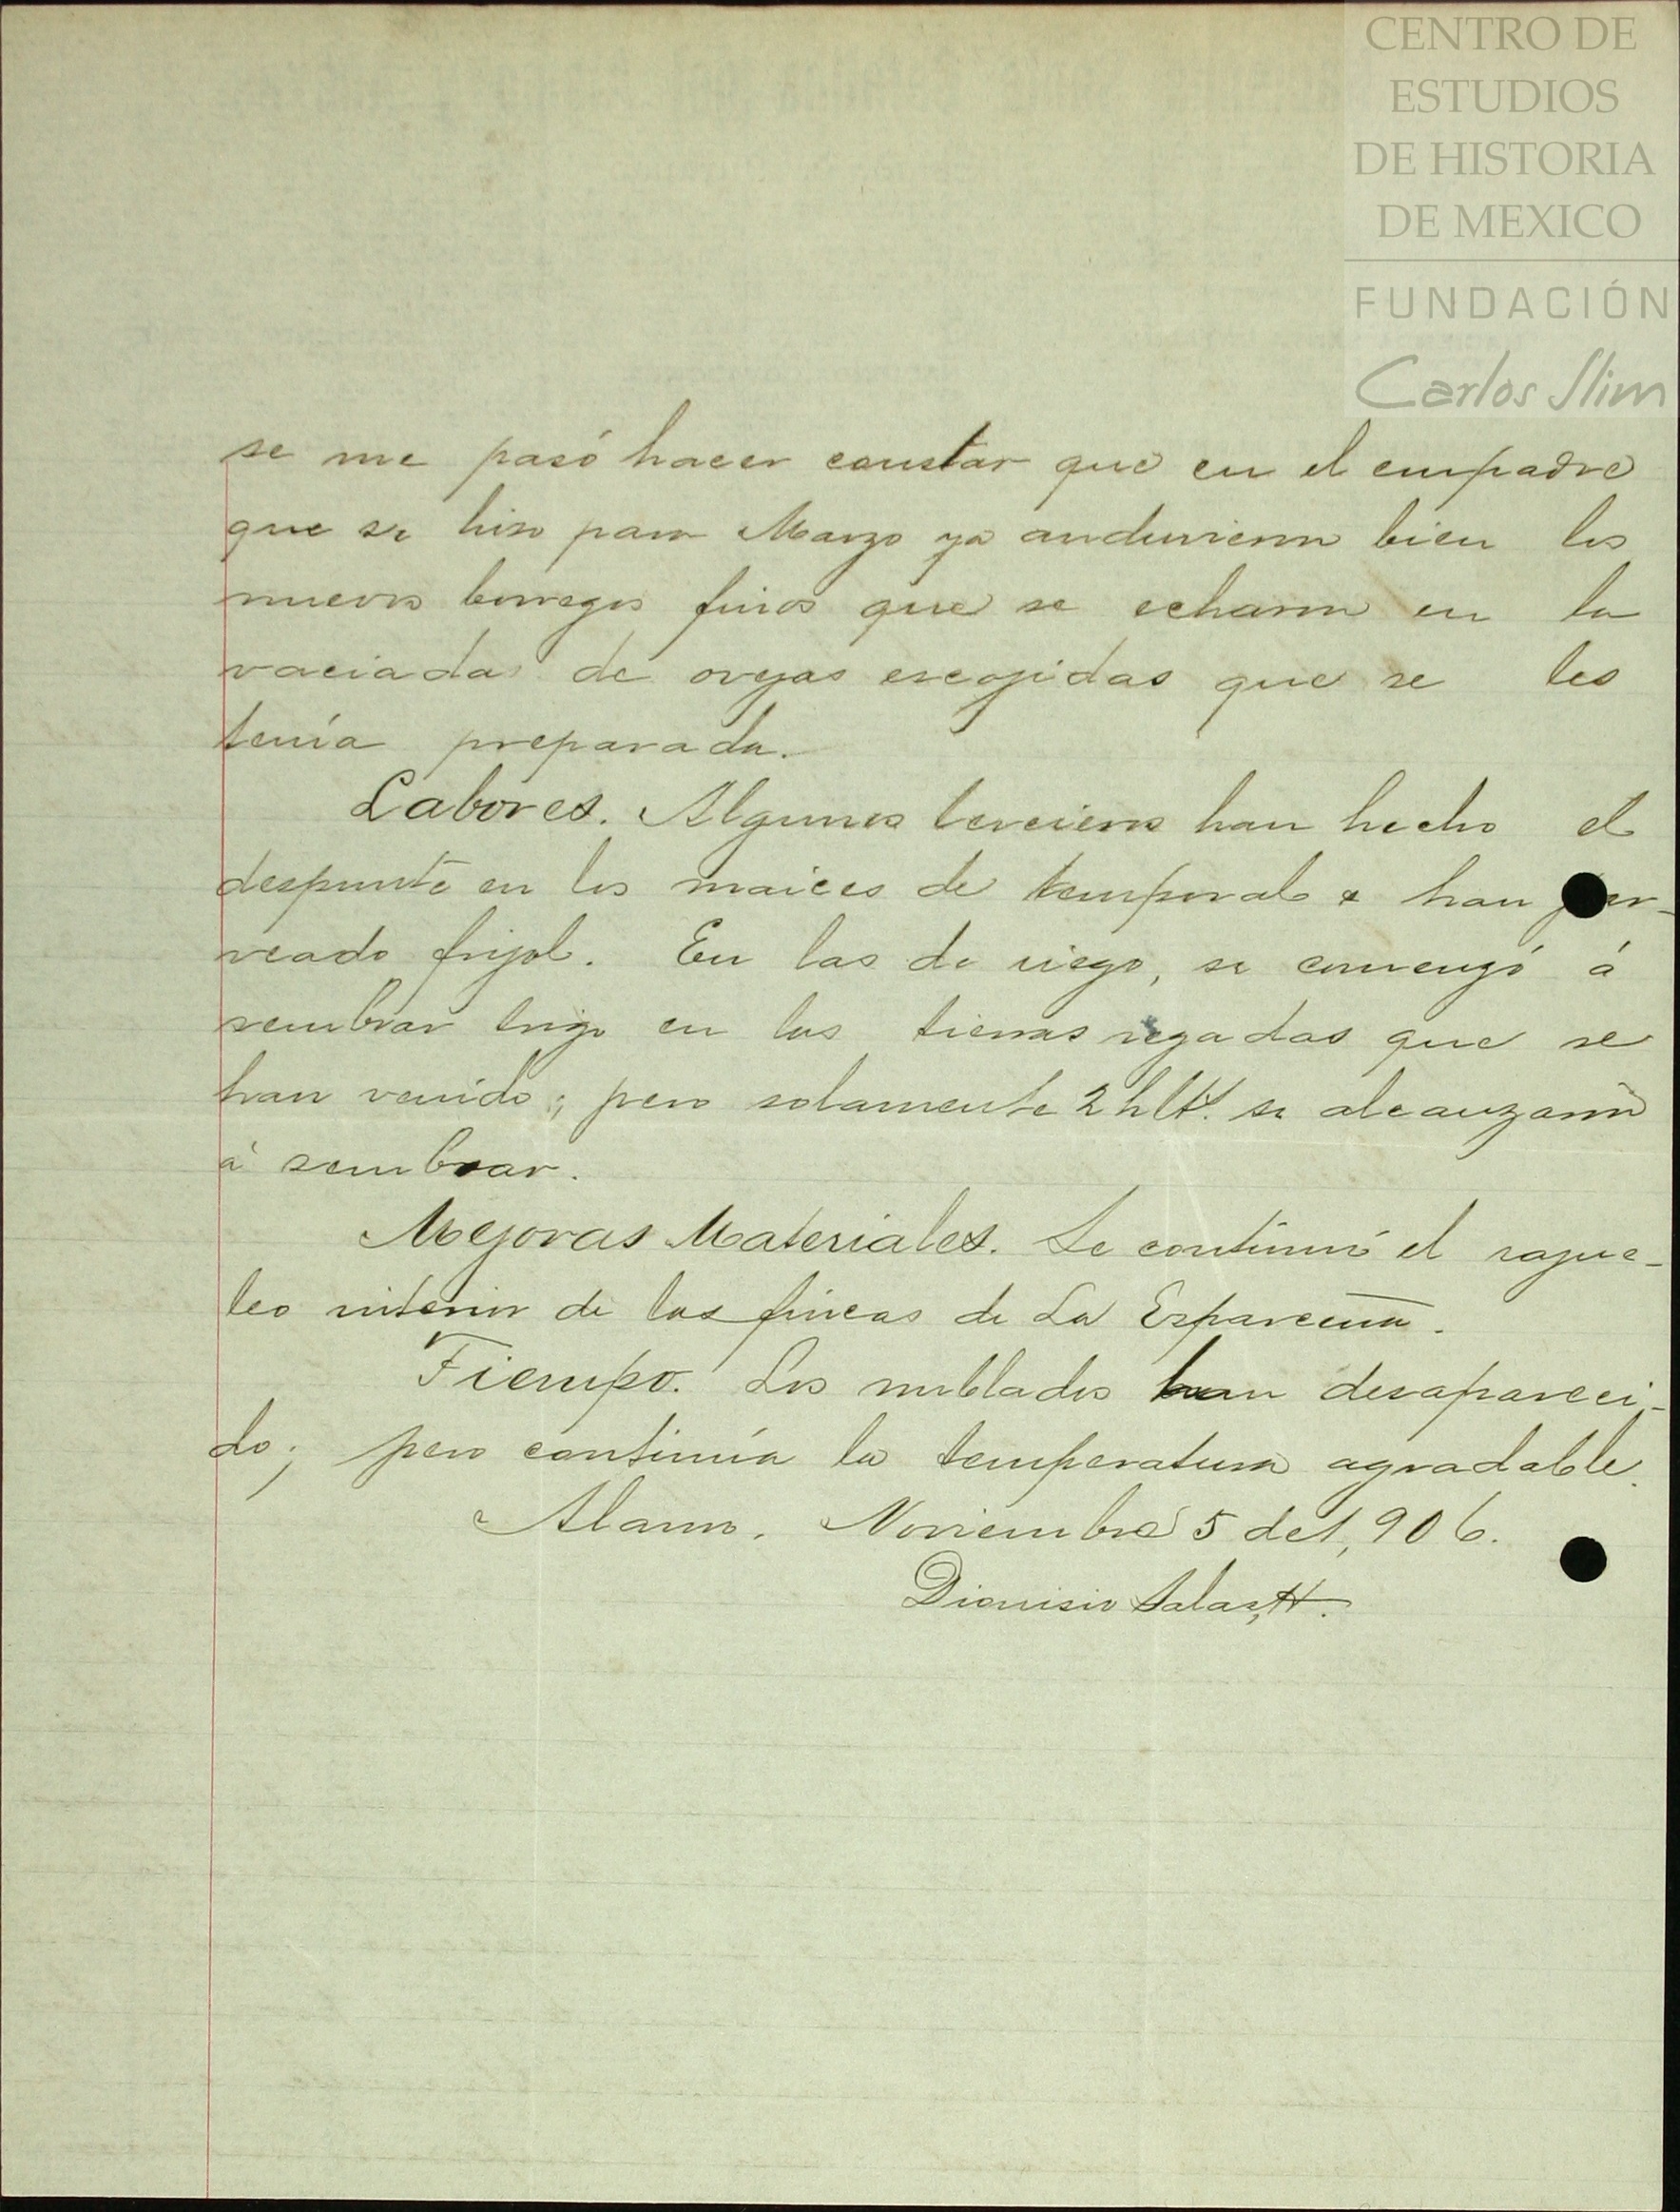 CENTRO DE
ESTUDIOS
DE HISTORIA
DE MEXICO
FUNDACIÓN
Carlos Slim
se me pasó hacer constar que en el empadre
que se hiso para Marzo ya anduvieron bien los
nuevos borregos finos que se echaron en la
vaciada de ovejas escojidas que se les
tenía preparada.
Labores. Algunos tercieros han hecho el
despunte en los maices de temporal han
veado frijol. En las de riego, se comenzó á
sembrar trigo en las tierras regadas que se
han venido; pero solamente 2 hlts. se alcanzaron
á sembrar.
Mejoras Materiales. Se continuó el
leo interior de las fincas de La
Tiempo. Los nublados han desapareci-
do; pero continúa la temperatura agradable.
Alamo. Noviembre 5 de 1,906.
Dionisio Salas, H.